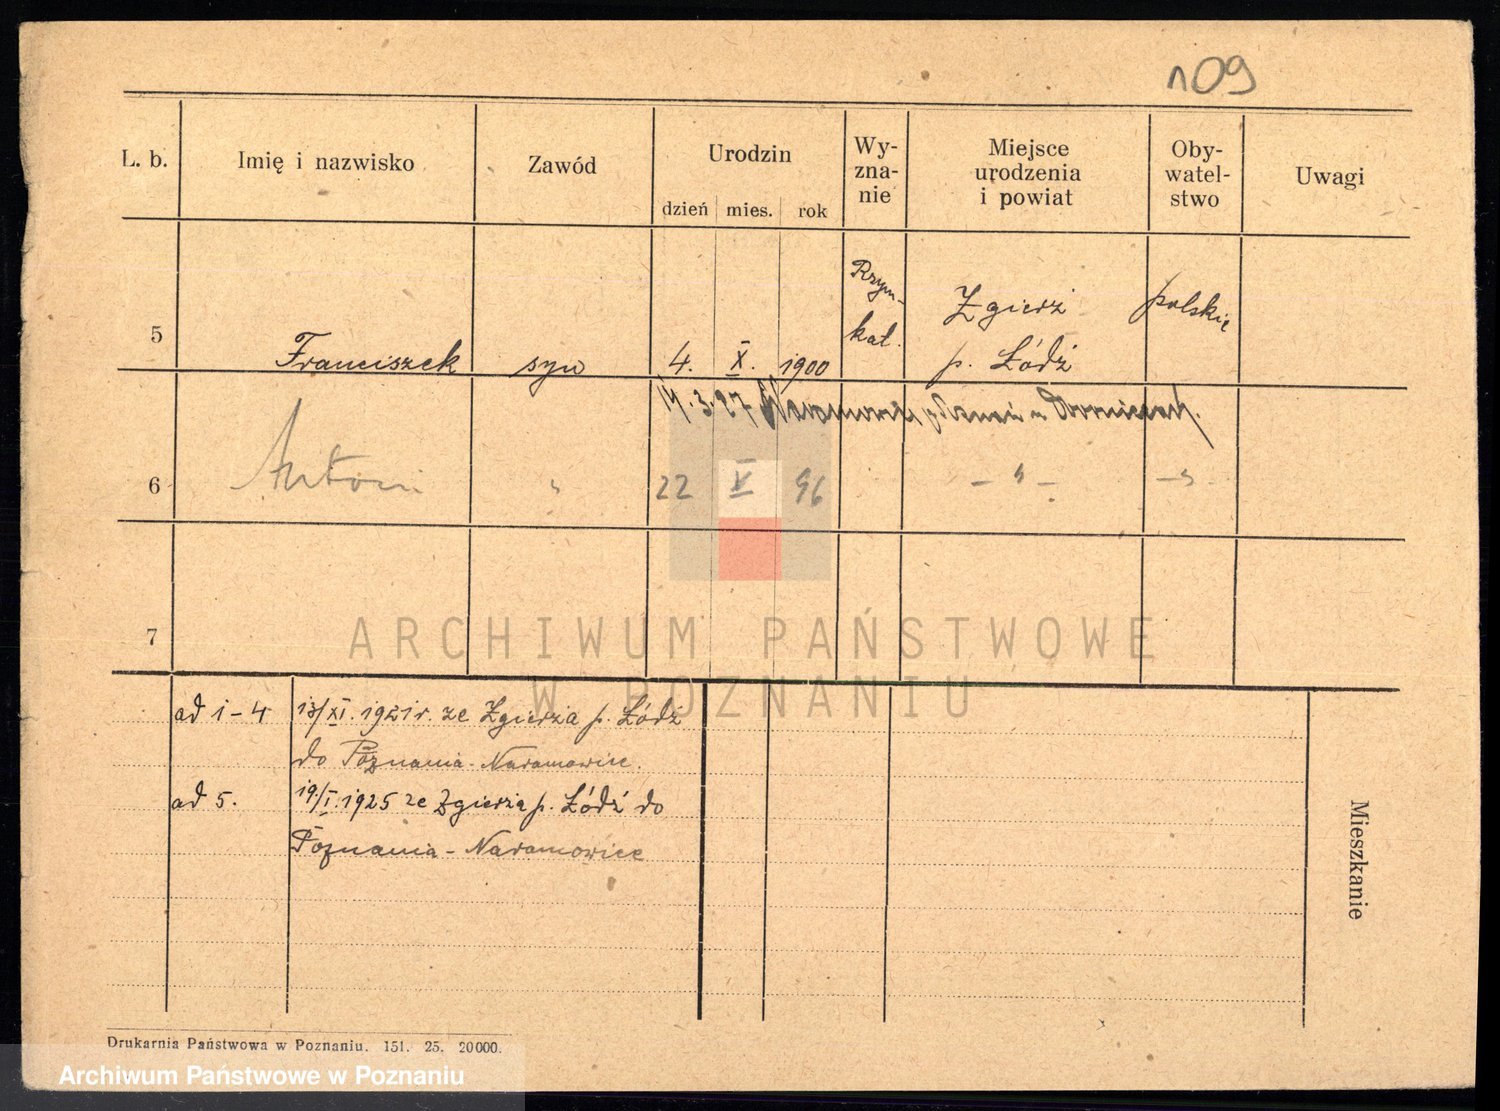 109
L. b.
Imię i nazwisko
Zawód
Urodzin
dzień mies. rok
Wy-
zna-
nie
Miejsce
urodzenia
i powiat
Oby-
watel-
stwo
Uwagi
5 Franciszek syn 4. X. 1900
Rzym-
kat.
Zgierz
p. Łódź
polskie
14.3.27
6 Antoni " 22 V 96 – " – – " –
7
ARCHIWUM PAŃSTWOWE
W POZNANIU
ad 1 – 4 13/XI. 1921 r. ze Zgierza p. Łódź
do Poznania - Naramowice.
ad 5. 19/I. 1925 ze Zgierza p. Łódź do
Poznania - Naramowice
Mieszkanie
Drukarnia Państwowa w Poznaniu. 151. 25. 20000.
Archiwum Państwowe w Poznaniu